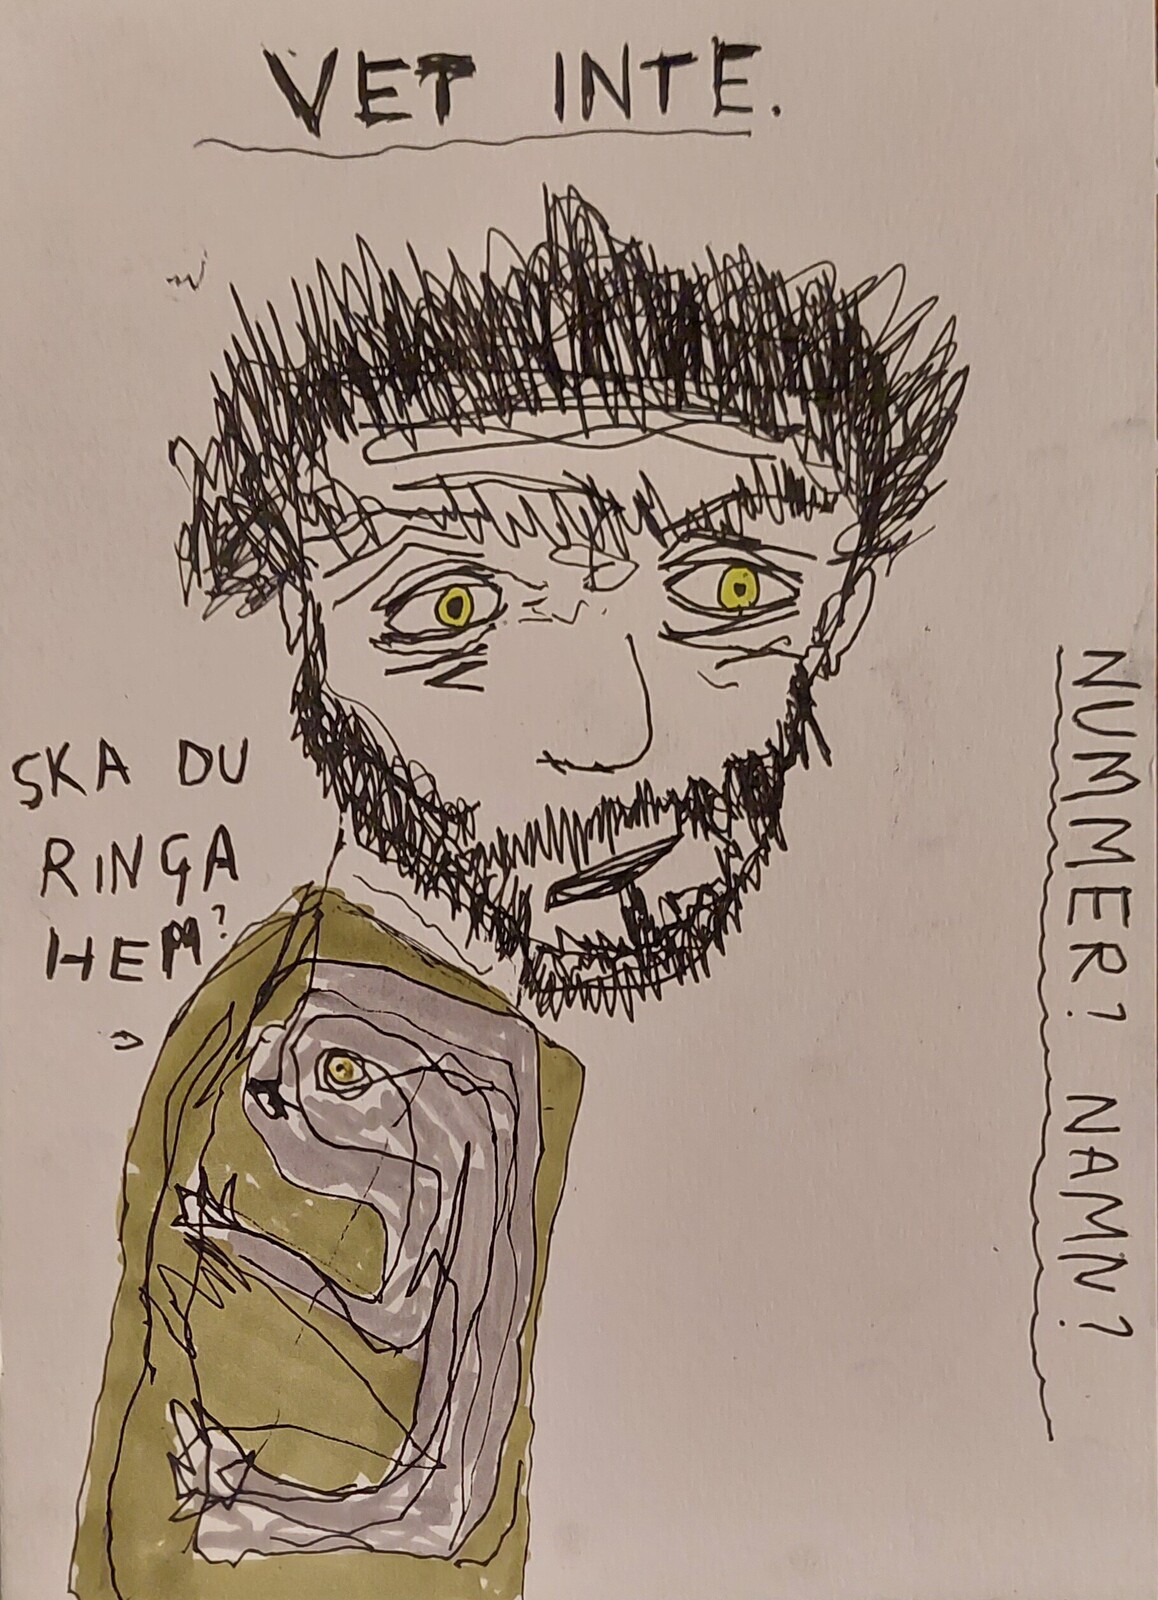 VET INTE.
SKA DU
RINGA
HEM?
NUMMER? NAMN?